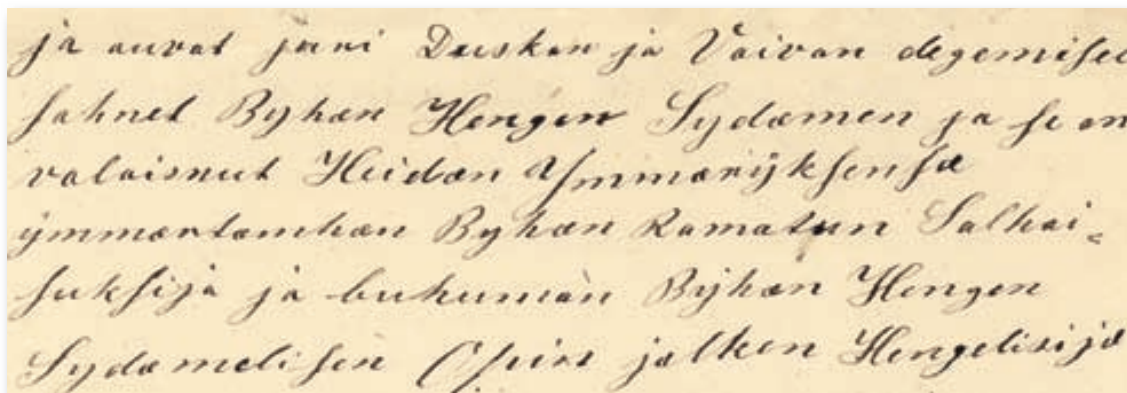 ja ouvat juri Duskan ja Vaivan degemisen
sahnet Byhæn Hengen Sydæmen ja se on
valaisnut Heidæn Ymmærijksensæ
ijmmærtæmhæn Byhæn Ramatun Salhai=
suksija ja buhuman Bijhæn Hengen
Sydæmelisen Opin jælken Hengelisijæ